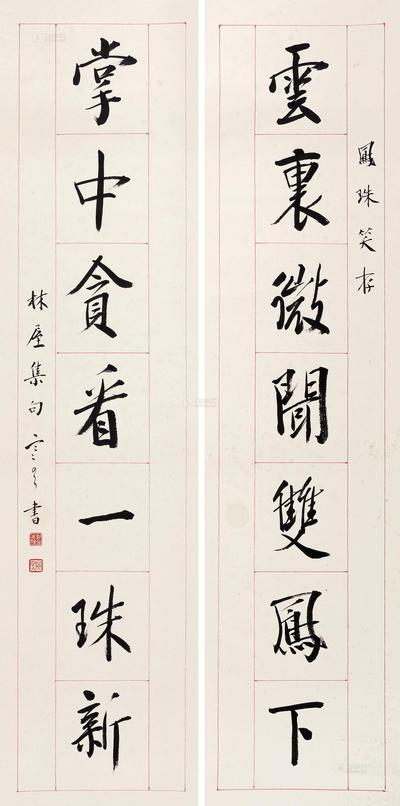 鳳珠笑存
雲裏微聞雙鳳下
掌中貪看一珠新
林屋集句寒雲書